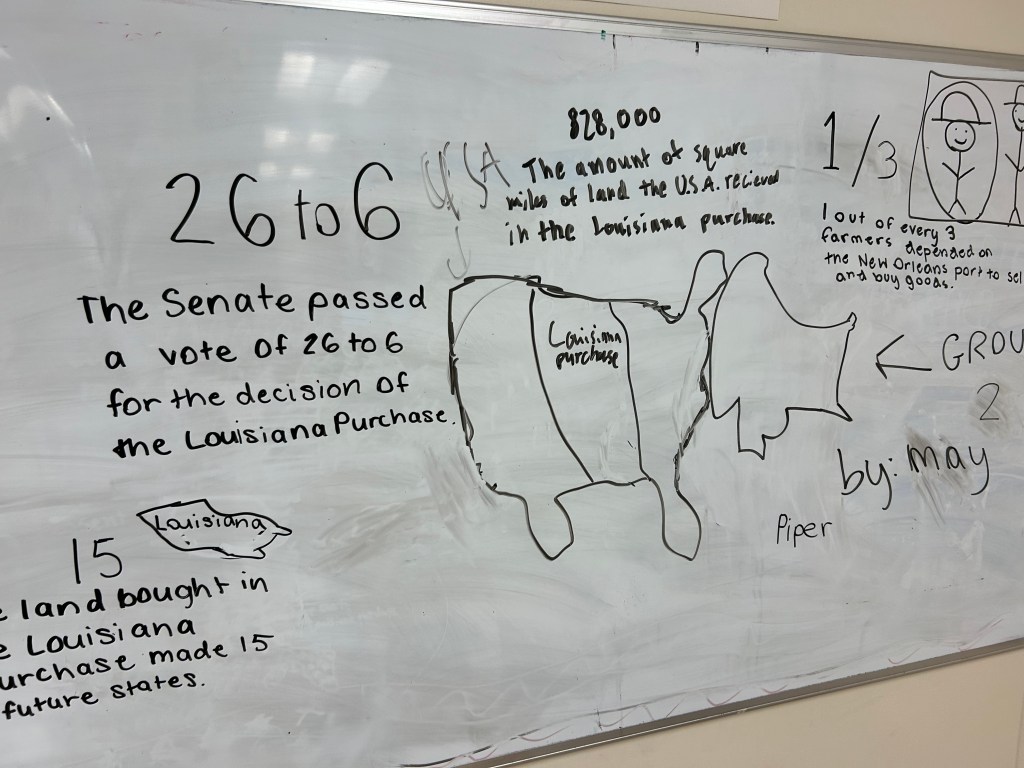 26 to 6
The Senate passed
a vote of 26 to 6
for the decision of
the Louisiana Purchase.
USA
828,000
The amount of square
miles of land the U.S.A. recieved
in the Louisiana purchase.
1/3
1 out of every 3
farmers depended on
the New Orleans port to sel
and buy goods.
Louisiana
purchase
GROU
2
by: may
Piper
Louisiana
15
e land bought in
e Louisiana
urchase made 15
future states.